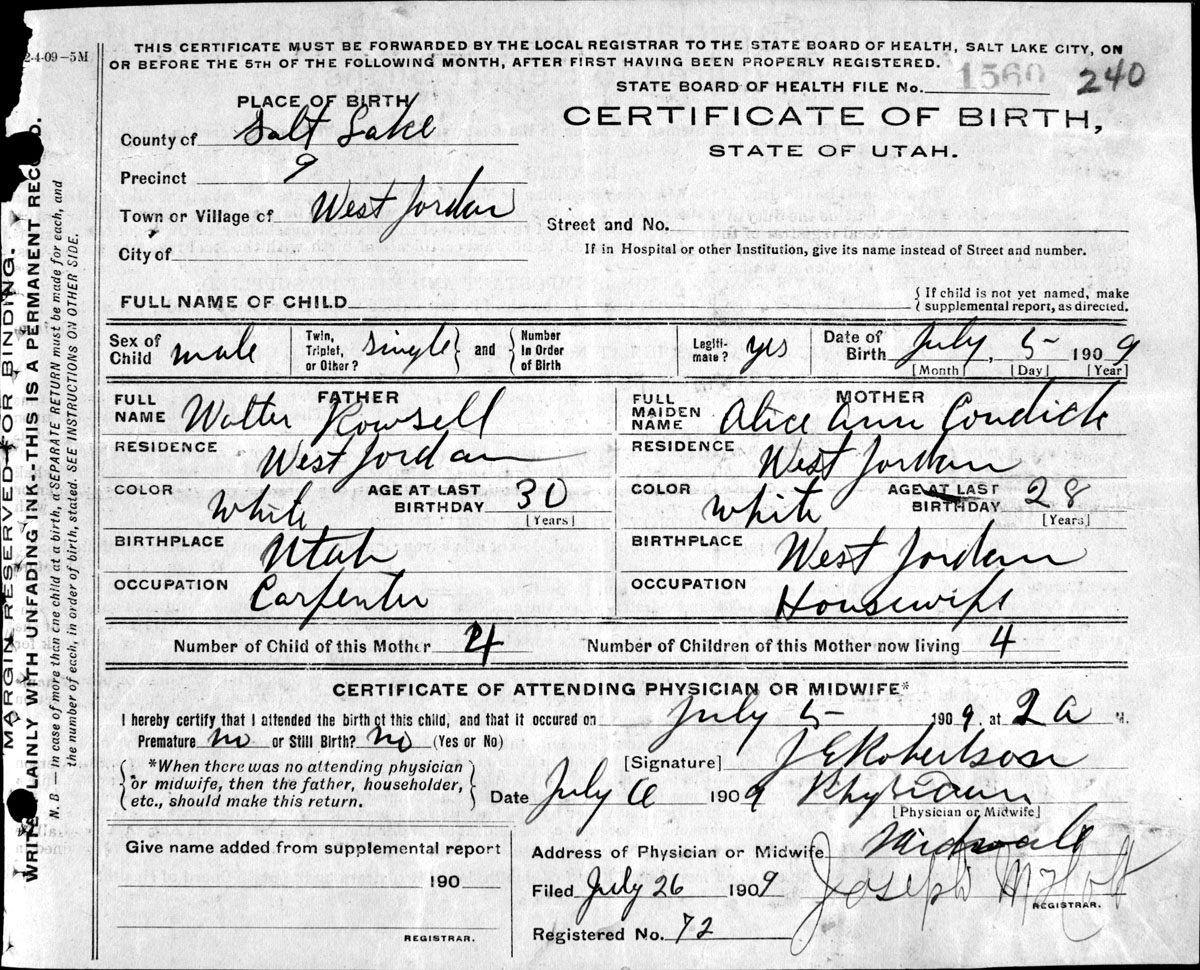 2-4-09-5M
THIS CERTIFICATE MUST BE FORWARDED BY THE LOCAL REGISTRAR TO THE STATE BOARD OF HEALTH, SALT LAKE CITY, ON
OR BEFORE THE 5TH OF THE FOLLOWING MONTH, AFTER FIRST HAVING BEEN PROPERLY REGISTERED.
STATE BOARD OF HEALTH FILE No. 1560 240
PLACE OF BIRTH
CERTIFICATE OF BIRTH,
STATE OF UTAH.
County of Salt Lake
Precinct 9
Town or Village of West Jordan
Street and No.
City of
If in Hospital or other Institution, give its name instead of Street and number.
FULL NAME OF CHILD
{ If child is not yet named, make
supplemental report, as directed.
Sex of Child male
Twin, Triplet, or Other? single } and { Number In Order of Birth
Legiti-mate? yes
Date of Birth July, 5- 1909
[Month] [Day] [Year]
FATHER
FULL NAME Walter Rowsell
RESIDENCE West Jordan
COLOR White AGE AT LAST BIRTHDAY 30
[Years]
BIRTHPLACE Utah
OCCUPATION Carpenter
MOTHER
FULL MAIDEN NAME Alice Ann Condick
RESIDENCE West Jordan
COLOR White AGE AT LAST BIRTHDAY 28
[Years]
BIRTHPLACE West Jordan
OCCUPATION Housewife
Number of Child of this Mother 4 Number of Children of this Mother now living 4
CERTIFICATE OF ATTENDING PHYSICIAN OR MIDWIFE*
I hereby certify that I attended the birth of this child, and that it occured on July 5- 1909, at 2 a M.
Premature no or Still Birth? no (Yes or No)
{ *When there was no attending physician
or midwife, then the father, householder,
etc., should make this return. }
[Signature] J E Robertson
Date July 6 1909 Physician
[Physician or Midwife]
Give name added from supplemental report
190
REGISTRAR.
Address of Physician or Midwife Midvale
Filed July 26 1909 Joseph M Holt
REGISTRAR.
Registered No. 72
MARGIN RESERVED FOR BINDING.
WRITE PLAINLY WITH UNFADING INK--THIS IS A PERMANENT RECORD.
N. B.—in case of more than one child at a birth, a SEPARATE RETURN must be made for each, and
the number of each, in order of birth, stated. SEE INSTRUCTIONS ON OTHER SIDE.